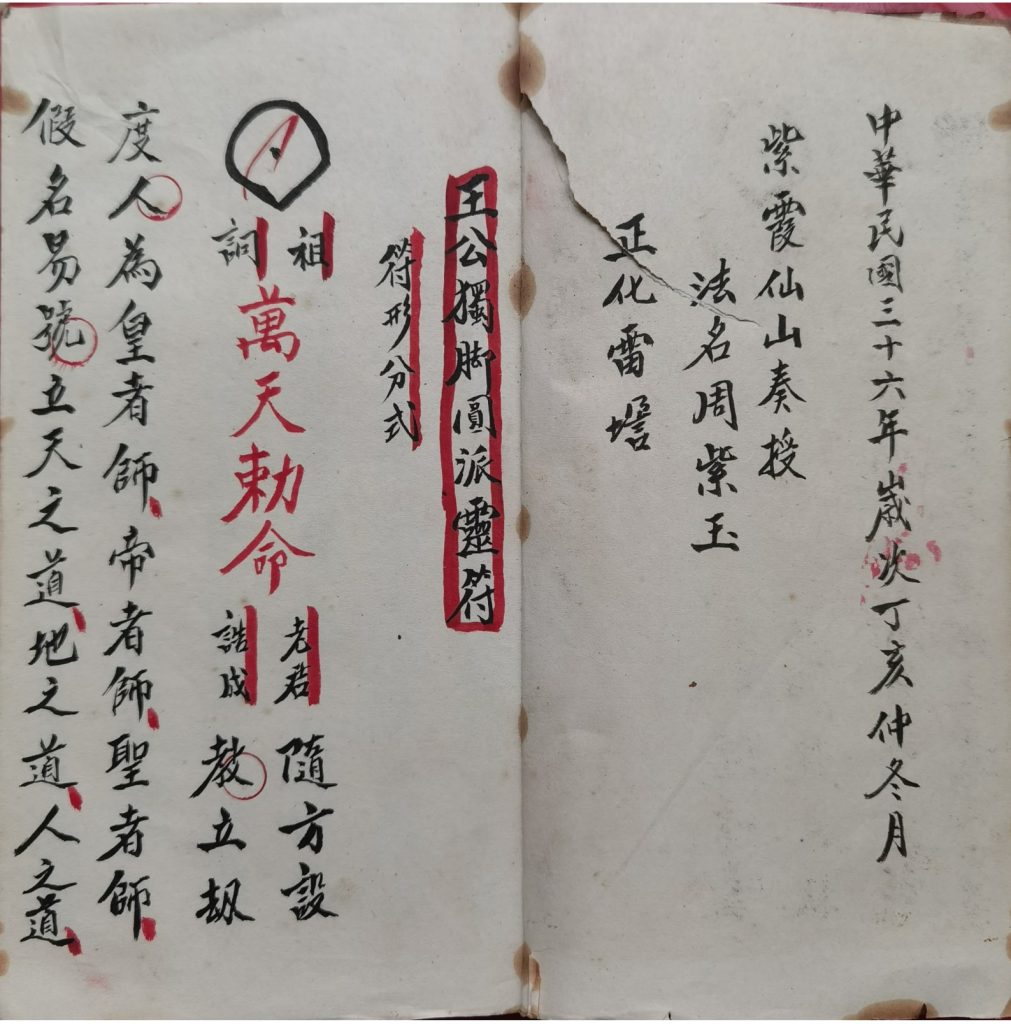 中華民國三十六年歲次丁亥仲冬月
紫霞仙山奏授
法名周紫玉
正化雷壇
王公獨脚圓派靈符
符形分式
祖
詞
萬天勅命
老君
誥成
隨方設
教立刼
度人為皇者師帝者師聖者師
假名易號立天之道地之道人之道